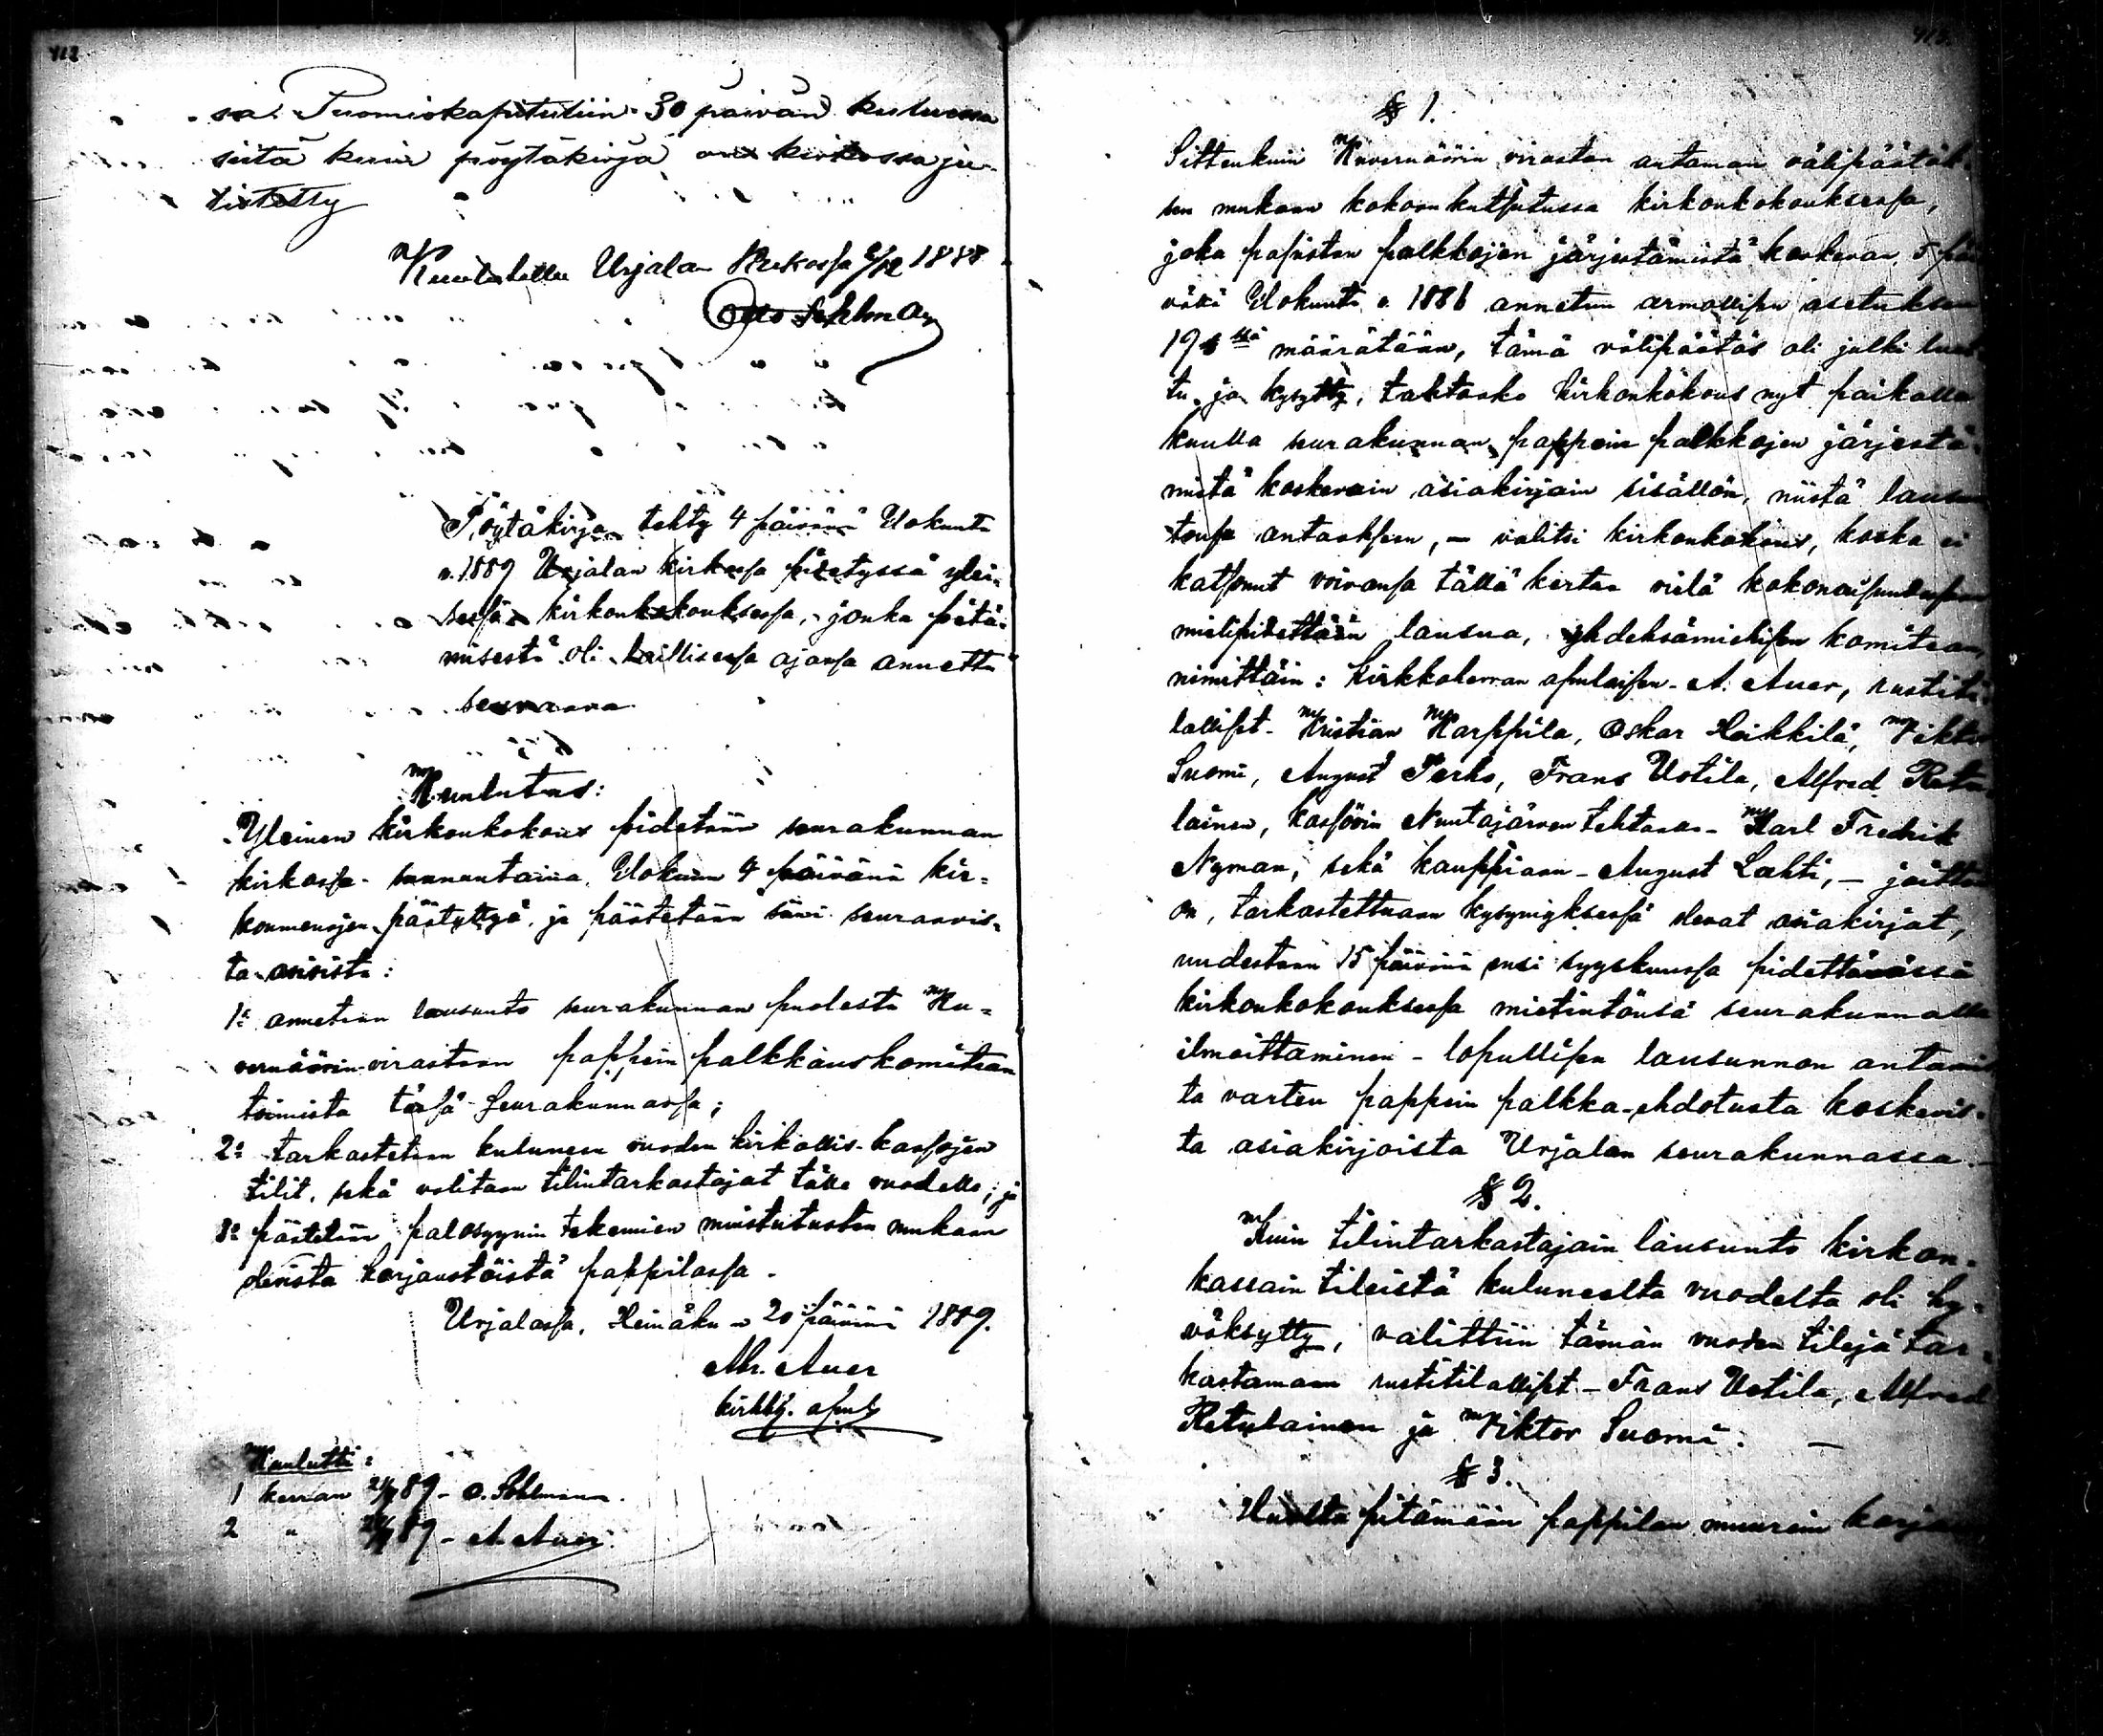 412
sa Tuomiokapituliin 30 päivän kuluessa
siitä kuin pöytäkirja on kirkossa ju-
listettu
Kuulutettu Urjalan Kirkossa 2/12 1888
Otto Sohlman
Pöytäkirja, tehty 4 päivänä Elokuuta
v. 1889 Urjalan kirkossa pidetyssä ylei-
sessä kirkonkokouksessa, jonka pitä-
misestä oli laillisessa ajassa annettu
seuraava
Kuulutus:
Yleinen kirkonkokous pidetään seurakunnan
kirkossa sunnuntaina Elokuun 4 päivänä kir=
konmenojen päätyttyä, ja päätetään siinä seuraavis=
ta asioista:
1:ä annetaan lausunto seurakunnan puolesta Ku=
vernöörin-virastoon pappein palkkauskomitean
toimista täsä seurakunnassa;
2:ä tarkastetaan kuluneen vuoden kirkollis-kassojen
tilit, sekä valitaan tilintarkastajat tälle vuodelle; ja
3:ä päätetään palosyynin tekemien muistutusten mukaan
olevista korjaustöistä pappilassa.
Urjalassa, Heinäku un 20 päivänä 1889.
Abr. Auer
kirkkh. apul.
Kuulutti:
1 kerran 21/7 89 - O. Sohlman.
2 " 28/7 89 - A. Auer.
§ 1.
Sittenkuin Kuvernöörin viraston antaman välipäätök-
sen mukaan kokoonkutsutussa kirkonkokouksessa,
joka papiston palkkojen järjestämistä koskevan, 5 päi
vänä Elokuuta v. 1886 annetun armollisen asetuksen
19 § ssä määrätään, tämä välipäätös oli julki luet-
tu, ja kysytty, tahtooko kirkonkokous nyt paikalla
kuulla seurakunnan pappein palkkojen järjestä-
mistä koskevain asiakirjain sisällön, niistä lausun
tonsa antaakseen, — valitsi kirkonkokous, koska ei
katsonut voivansa tällä kertaa vielä kokonaisuudessaan
mielipidettään lausua, yhdeksämiehisen komitean,
nimittäin: kirkkoherran apulaisen A. Auer, rustiti-
lalliset Kristian Karppila, Oskar Heikkilä, Viktor
Suomi, August Perho, Frans Uotila, Alfred Retu-
lainen, kassöörin Nuutajärven tehtaas- Karl Fredrik
Nyman, sekä kauppiaan August Lahti, — joitten
on, tarkastettuaan kysymyksessä olevat asiakirjat,
uudestaan 15 päivänä ensi syyskuussa pidettävässä
kirkonkokouksessa mietintönsä seurakunnalla
ilmoittaminen - lopullisen lausunnon antamis
ta varten pappein palkka-ehdotusta koskevis-
ta asiakirjoista Urjalan seurakunnassa.—
§ 2.
Kuin tilintarkastajain lausunto kirkon-
kassain tileistä kuluneelta vuodelta oli hy-
väksytty, valittiin tämän vuoden tilejä tar-
kastamaan rustitilalliset - Frans Uotila, Alfred
Retulainen ja Viktor Suomi. —
§ 3.
Huolta pitämään pappilan muurein korjau